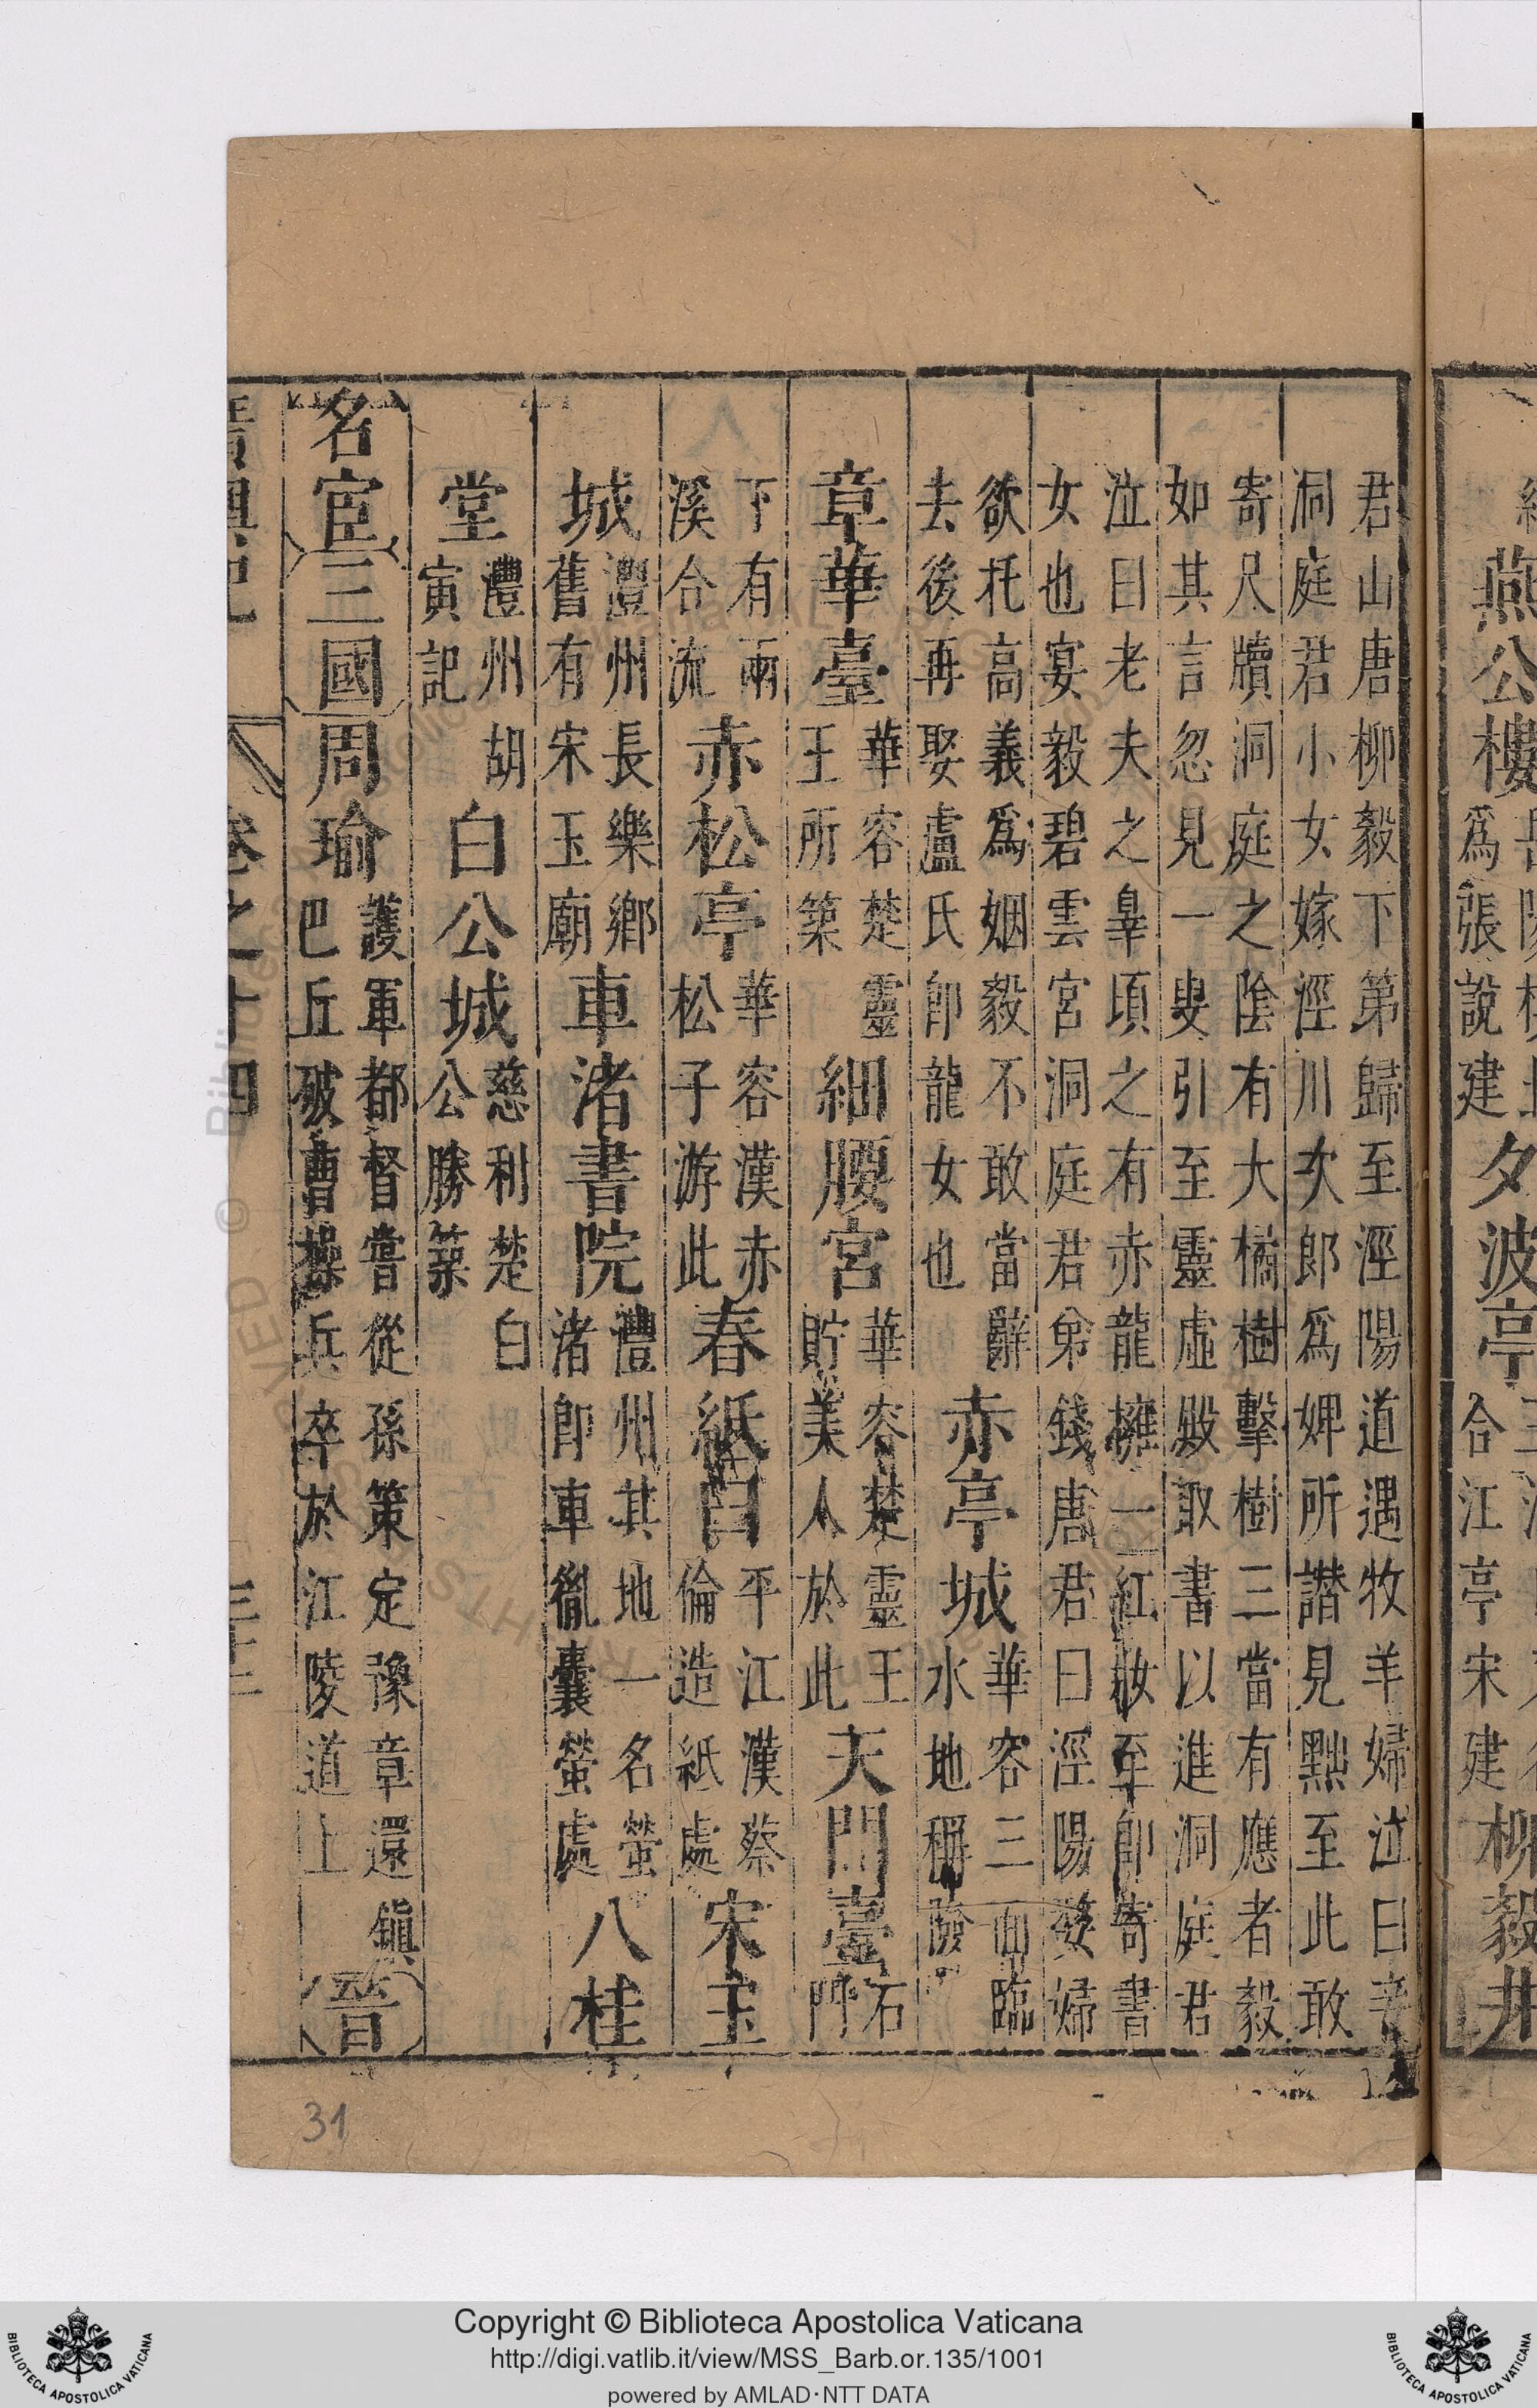 燕公樓
爲張說建
夕波亭
合江亭宋建
柳毅井
君山唐柳毅下第歸至涇陽道遇牧羊婦泣曰妾
洞庭君小女嫁涇川次郎爲婢所譖見黜至此敢
寄尺牘洞庭之陰有大橘樹擊樹三當有應者毅
如其言忽見一叟引至靈虛殿取書以進洞庭君
泣曰老夫之辠頃之有赤龍擁一紅妝至卽寄書
女也宴毅碧雲宮洞庭君弟錢唐君曰涇陽嫠婦
欲托高義爲姻毅不敢當辭
去後再娶盧氏卽龍女也
赤亭城
華容三面臨
水地稱險
章華臺
華容楚靈
王所築
細腰宮
華容楚靈王
貯美人於此
天門臺
石
門
下有兩
溪合流
赤松亭
華容漢赤
松子游此
春紙臼
平江漢蔡
倫造紙處
宋玉
城
澧州長樂鄉
舊有宋玉廟
車渚書院
澧州其地一名螢
渚卽車胤囊螢處
八桂
堂
澧州胡
寅記
白公城
慈利楚白
公勝築
名宦
三國
周瑜
護軍都督嘗從孫策定豫章還鎮
巴丘破曹操兵卒於江陵道上
晉
廣輿記 卷之十四
31
Copyright © Biblioteca Apostolica Vaticana
http://digi.vatlib.it/view/MSS_Barb.or.135/1001
powered by AMLAD·NTT DATA
BIBLIOTECA APOSTOLICA VATICANA
BIBLIOTECA APOSTOLICA VATICANA